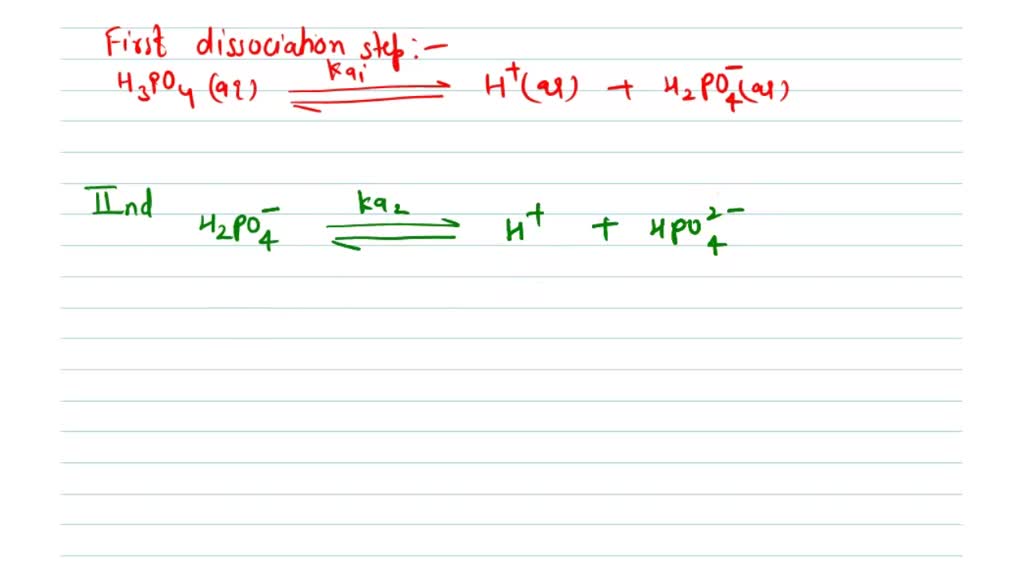 First dissociation step:-
H₃PO₄ (aq) ⇌ ka₁ H⁺(aq) + H₂PO₄⁻(aq)
IInd H₂PO₄⁻ ⇌ ka₂ H⁺ + HPO₄²⁻